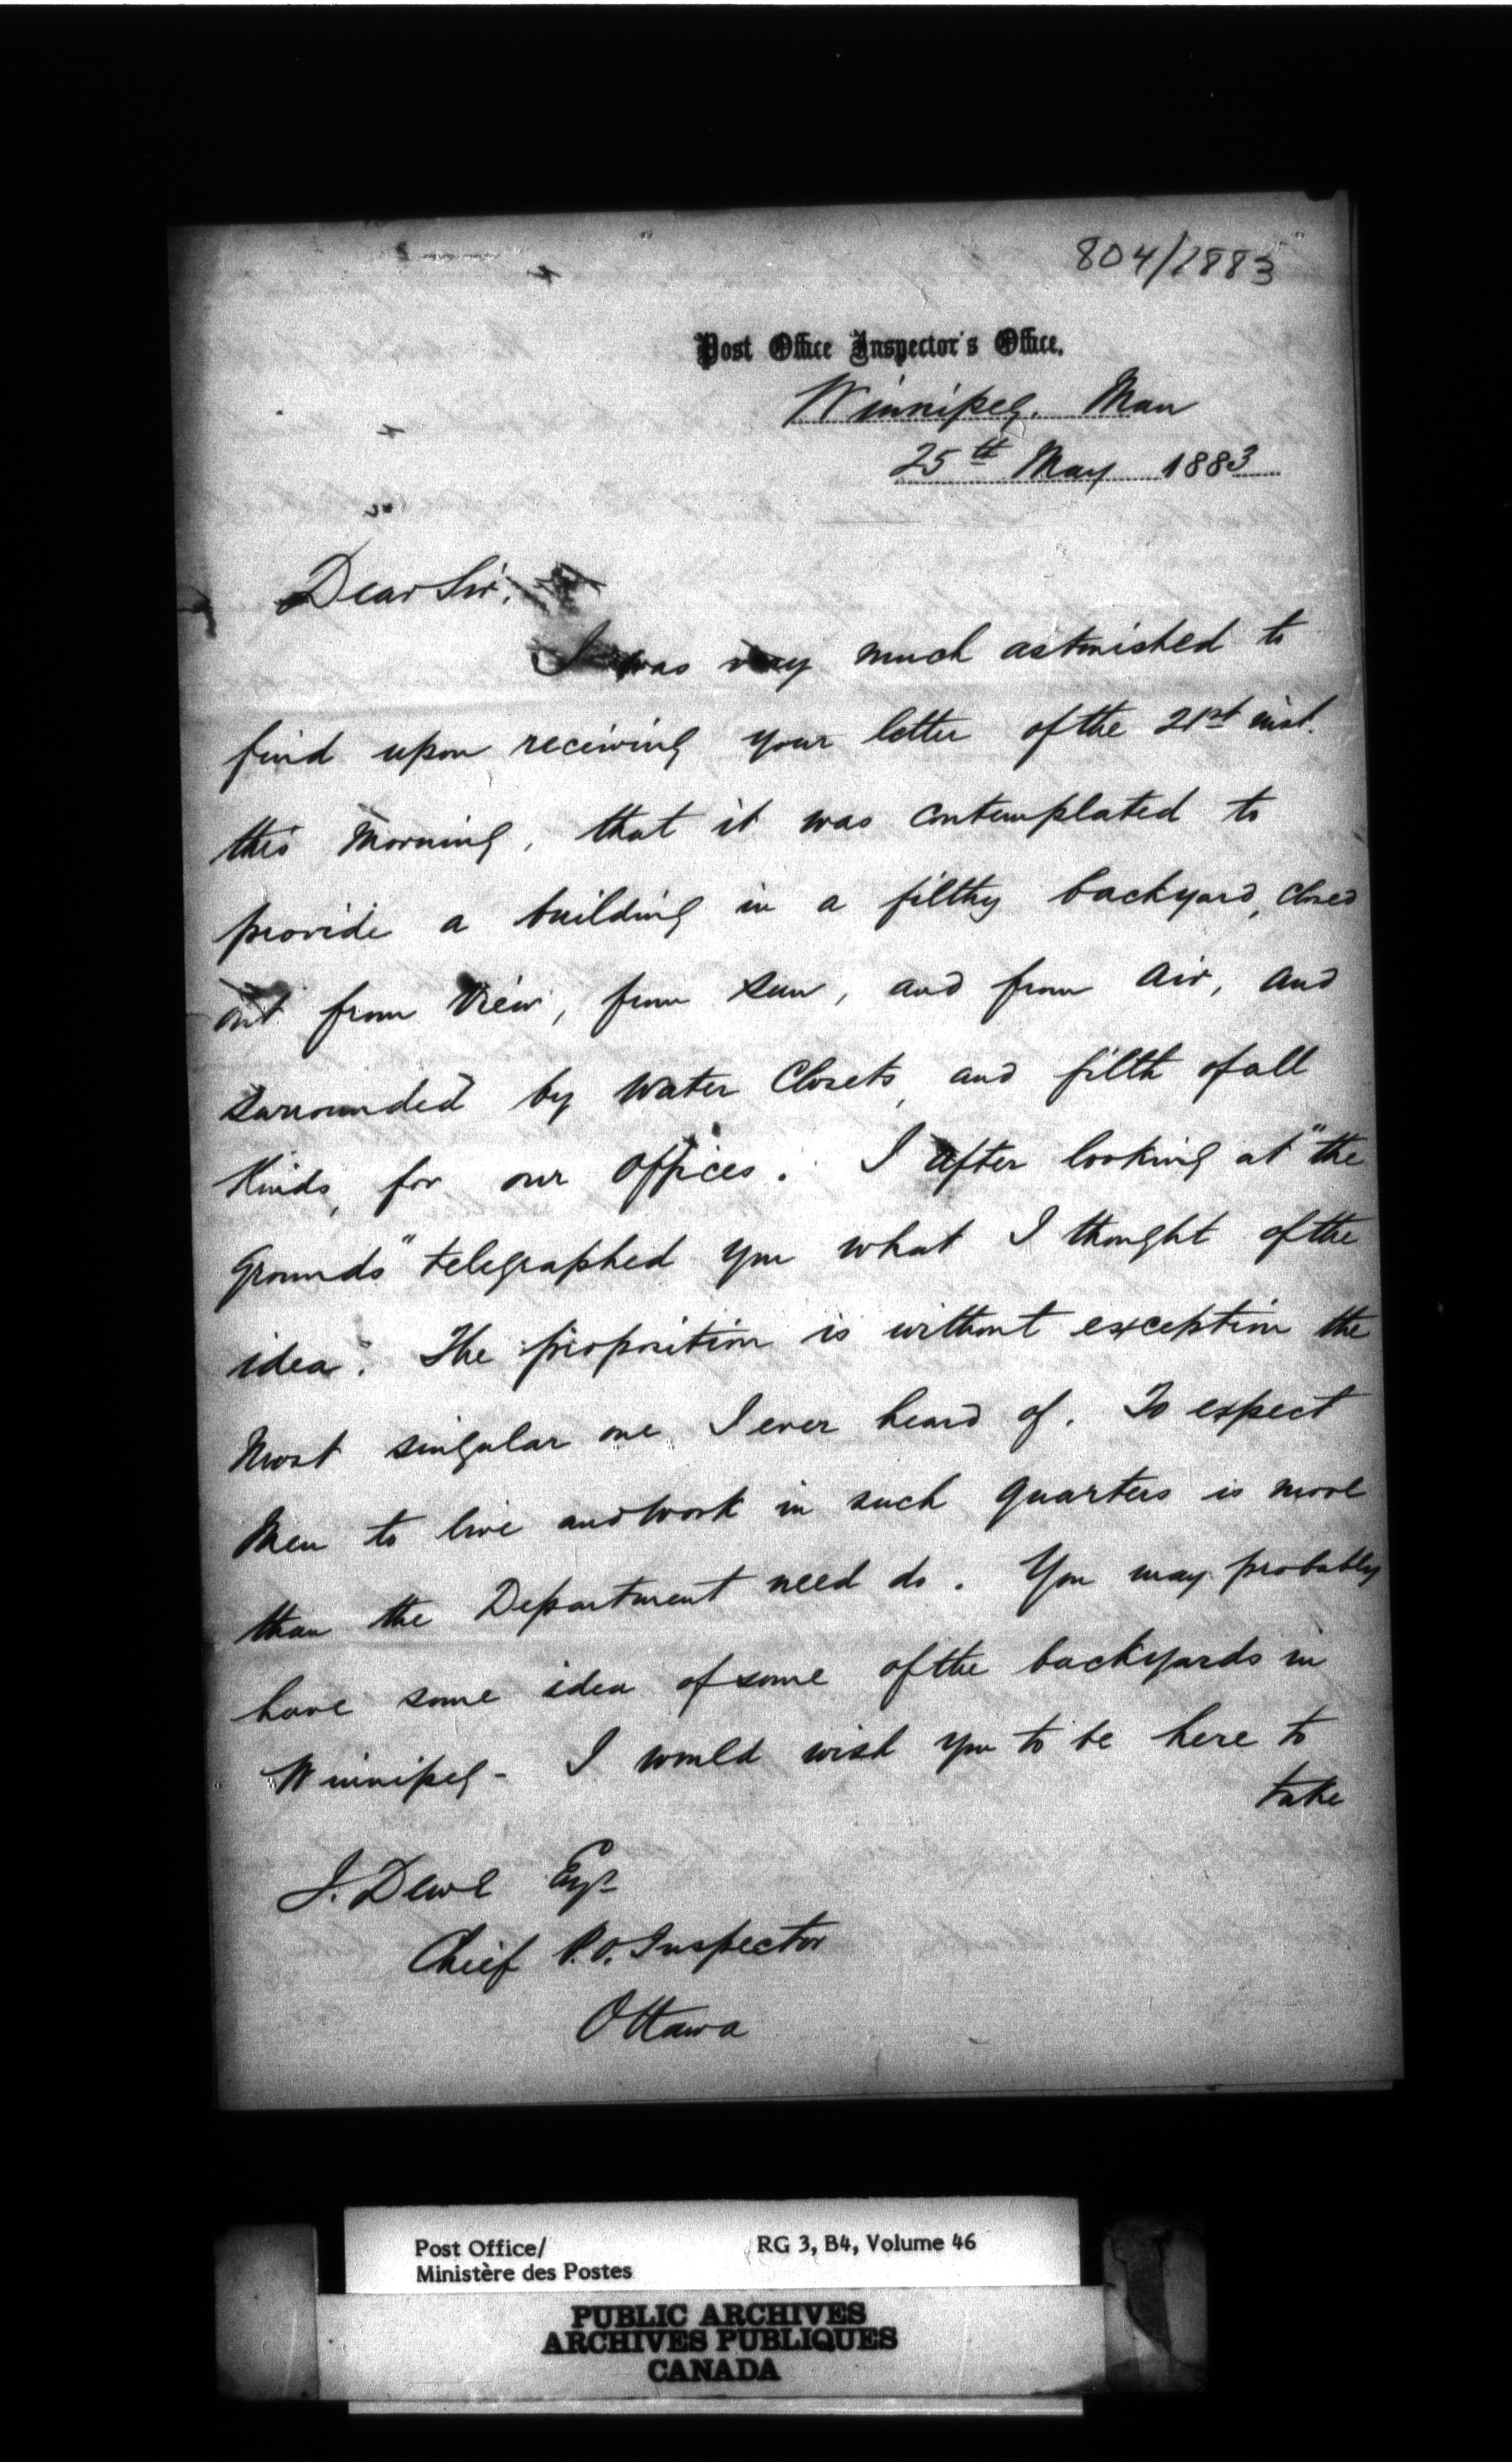 804/1883
Post Office Inspector's Office.
Winnipeg. Man
25th May 1883
Dear Sir,
I was very much astonished to
find upon receiving your letter of the 21st inst.
this morning, that it was contemplated to
provide a building in a filthy backyard, closed
out from view, from sun, and from air, and
surrounded by water closets, and filth of all
kinds, for our offices. I after looking at "the
grounds" telegraphed you what I thought of the
idea. The proposition is without exception the
most singular one I ever heard of. To expect
men to live and work in such quarters is more
than the Department need do. You may probably
have some idea of some of the backyards in
Winnipeg - I would wish you to be here to
take
J. Dewe Esqr
Chief P.O. Inspector
Ottawa
Post Office/
Ministère des Postes
RG 3, B4, Volume 46
PUBLIC ARCHIVES
ARCHIVES PUBLIQUES
CANADA